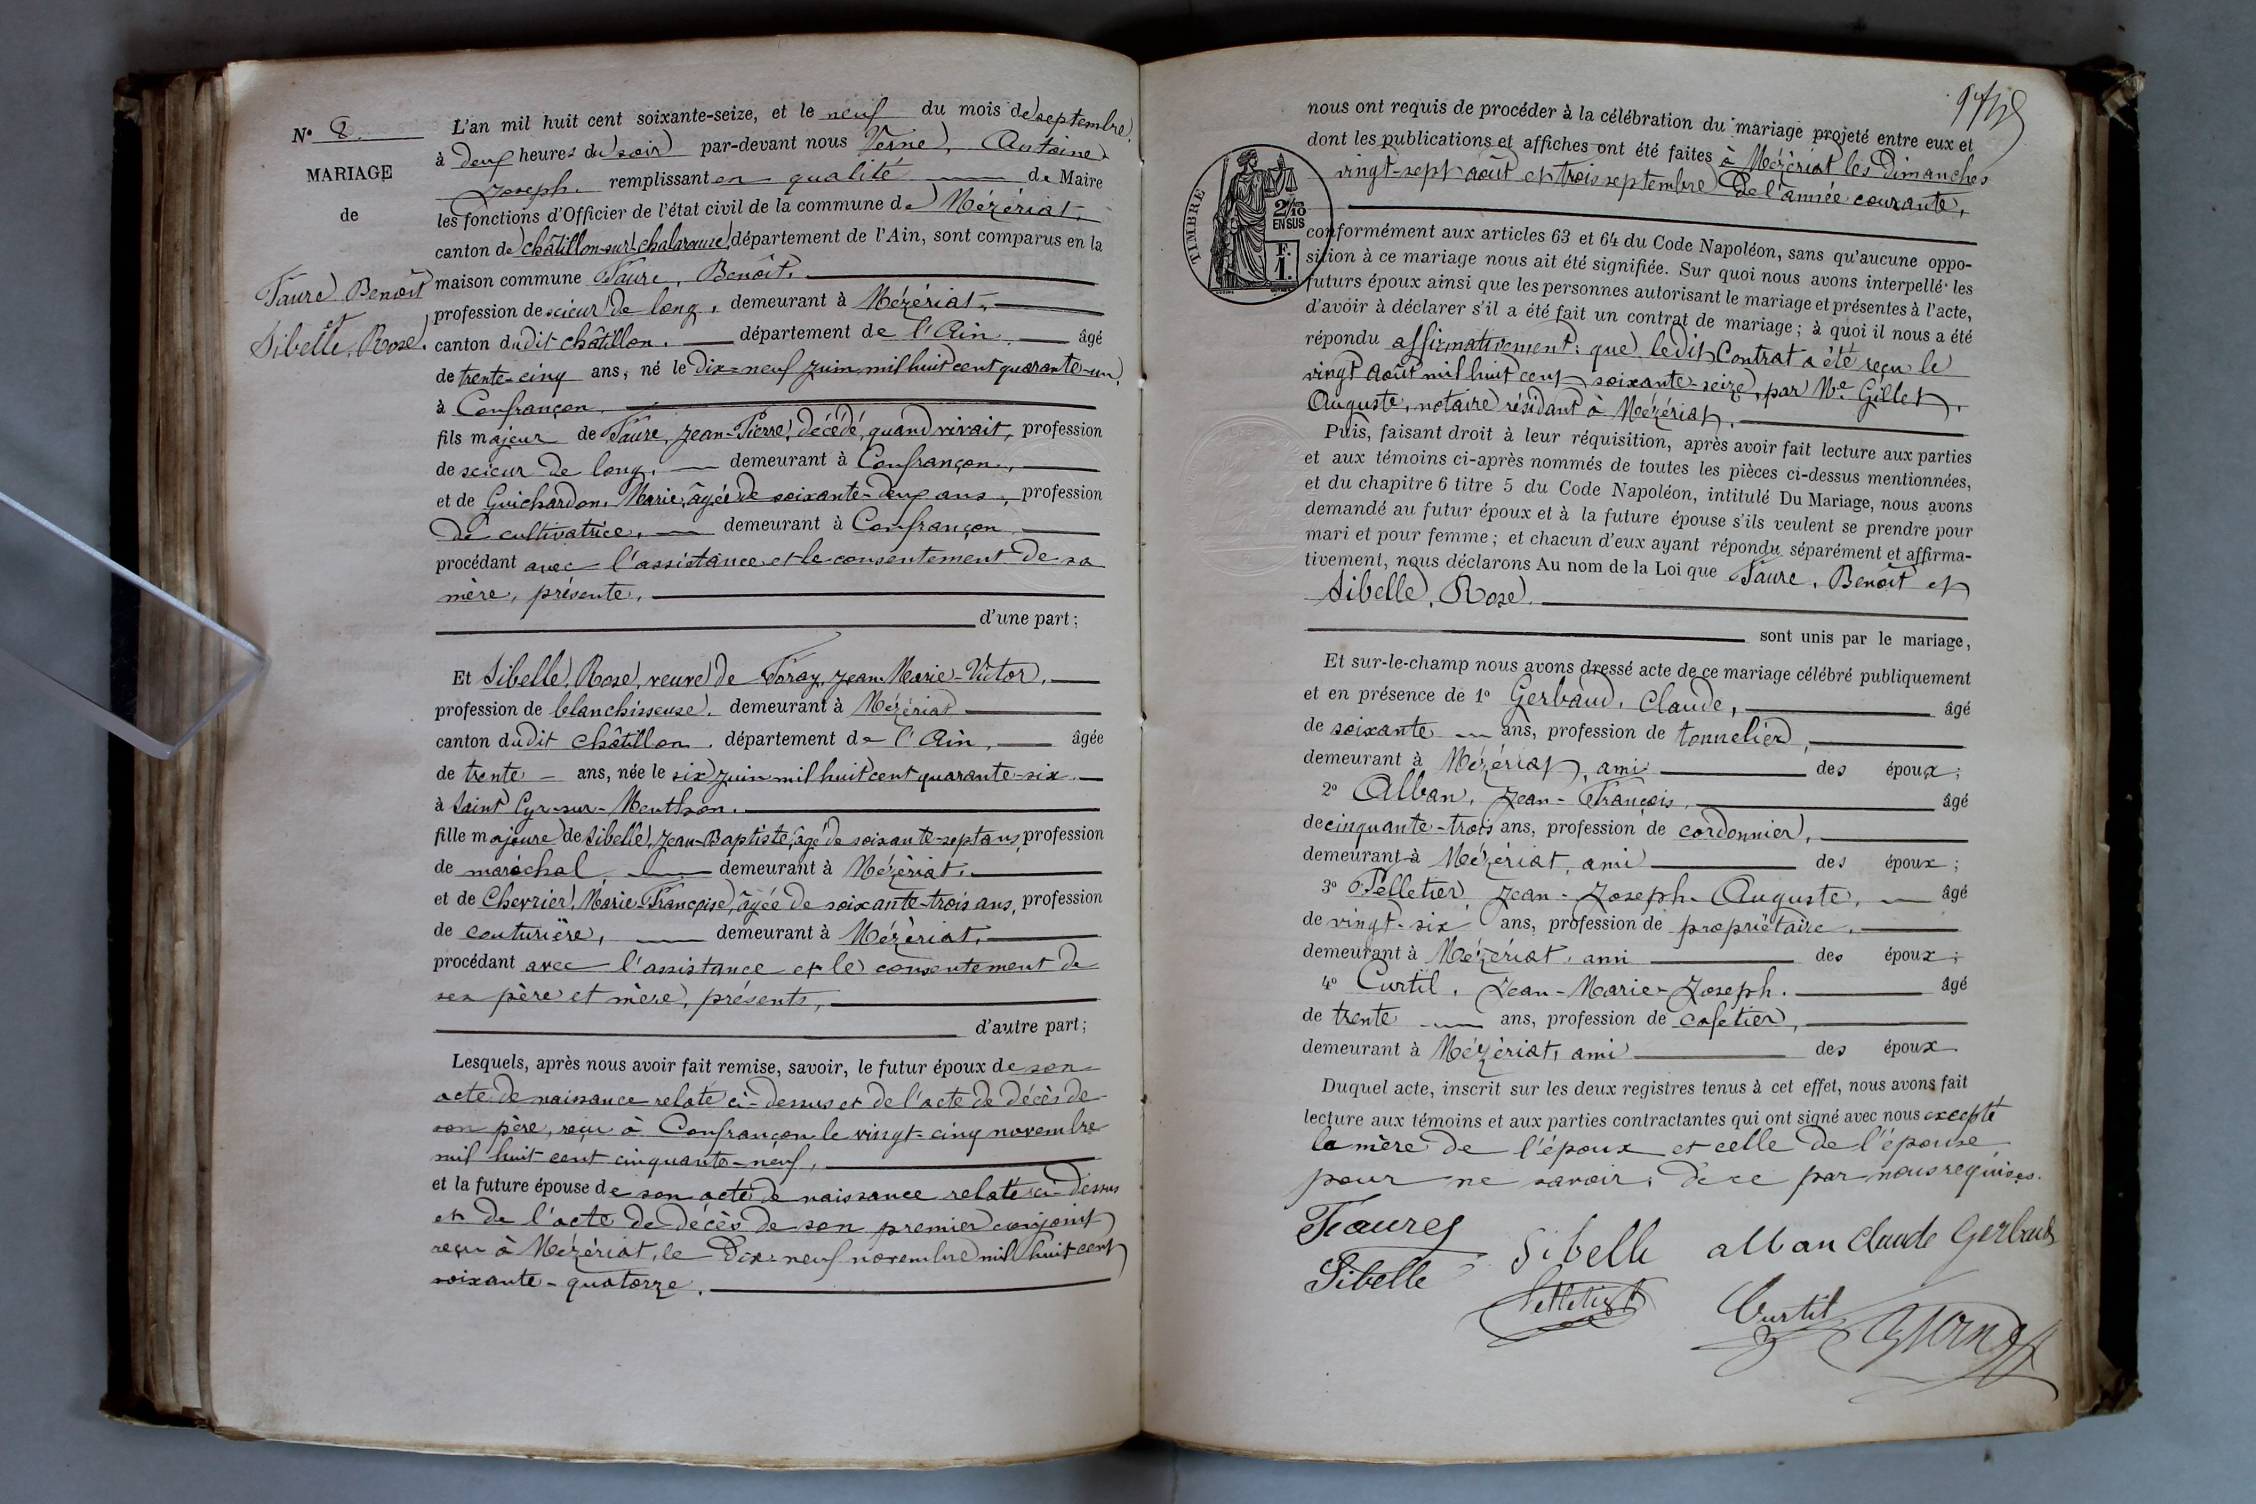 N° 8.
MARIAGE
de
Faure Benoît
et
Sibelle, Rose.
L'an mil huit cent soixante-seize, et le neuf du mois de septembre
à deux heures du soir par-devant nous Verne, Antoine
Joseph. remplissant en qualité de Maire
les fonctions d'Officier de l'état civil de la commune de Mézériat,
canton de châtillon-sur-chalaronne département de l'Ain, sont comparus en la
maison commune Faure, Benoît,
profession de scieur de long, demeurant à Mézériat,
canton dudit châtillon, département de l'Ain, âgé
de trente-cinq ans, né le Dix-neuf juin mil huit cent quarante-un,
à Confrançon,
fils majeur de Faure, Jean-Pierre, décédé, quand vivait, profession
de scieur de long, demeurant à Confrançon,
et de Guichardon, Marie, âgée de soixante-deux ans, profession
de cultivatrice, demeurant à Confrançon
procédant avec l'assistance et le consentement de sa
mère, présente,
d'une part;
Et Sibelle, Rose, veuve de Foray, Jean-Marie-Victor,
profession de blanchisseuse, demeurant à Mézériat
canton dudit châtillon, département de l'Ain, âgée
de trente ans, née le six juin mil huit cent quarante-six
à Saint Cyr-sur-Menthon.
fille majeure de Sibelle, Jean-Baptiste, âgé de soixante-sept ans, profession
de maréchal, demeurant à Mézériat,
et de Chevrier, Marie-Françoise, âgée de soixante-trois ans, profession
de couturière, demeurant à Mézériat,
procédant avec l'assistance et le consentement de
ses père et mère, présents,
d'autre part;
Lesquels, après nous avoir fait remise, savoir, le futur époux de son
acte de naissance relaté ci-dessus et de l'acte de décès de
son père, reçu à Confrançon le vingt-cinq novembre
mil huit cent cinquante-neuf,
et la future épouse de son acte de naissance relaté ci-dessus
et de l'acte de décès de son premier conjoint
reçu à Mézériat, le Dix-neuf novembre mil huit cent
soixante-quatorze.
nous ont requis de procéder à la célébration du mariage projeté entre eux et
dont les publications et affiches ont été faites à Mézériat les Dimanches
vingt-sept août et trois septembre De l'année courante,
TIMBRE
2/10
EN SUS
F.
1.
conformément aux articles 63 et 64 du Code Napoléon, sans qu'aucune oppo-
sition à ce mariage nous ait été signifiée. Sur quoi nous avons interpellé les
futurs époux ainsi que les personnes autorisant le mariage et présentes à l'acte,
d'avoir à déclarer s'il a été fait un contrat de mariage; à quoi il nous a été
répondu affirmativement: que ledit Contrat a été reçu le
vingt août mil huit cent soixante-seize, par Me Gillet,
Auguste, notaire résidant à Mézériat,
Puis, faisant droit à leur réquisition, après avoir fait lecture aux parties
et aux témoins ci-après nommés de toutes les pièces ci-dessus mentionnées,
et du chapitre 6 titre 5 du Code Napoléon, intitulé Du Mariage, nous avons
demandé au futur époux et à la future épouse s'ils veulent se prendre pour
mari et pour femme; et chacun d'eux ayant répondu séparément et affirma-
tivement, nous déclarons Au nom de la Loi que Faure, Benoît et
Sibelle, Rose.
sont unis par le mariage,
Et sur-le-champ nous avons dressé acte de ce mariage célébré publiquement
et en présence de 1° Gerbaud, Claude, âgé
de soixante ans, profession de tonnelier,
demeurant à Mézériat, ami des époux;
2° Alban, Jean-François, âgé
de cinquante-trois ans, profession de cordonnier,
demeurant à Mézériat, ami des époux;
3° Pelletier, Jean-Joseph-Auguste, âgé
de vingt-six ans, profession de propriétaire,
demeurant à Mézériat, ami des époux;
4° Curtil, Jean-Marie-Joseph. âgé
de trente ans, profession de cafetier,
demeurant à Mézériat, ami des époux
Duquel acte, inscrit sur les deux registres tenus à cet effet, nous avons fait
lecture aux témoins et aux parties contractantes qui ont signé avec nous excepté
la mère de l'époux et celle de l'épouse
pour ne savoir, de ce par nous requises.
Faure Sibelle alban Claude Gerbaud
Sibelle Pelletier Curtil Verne